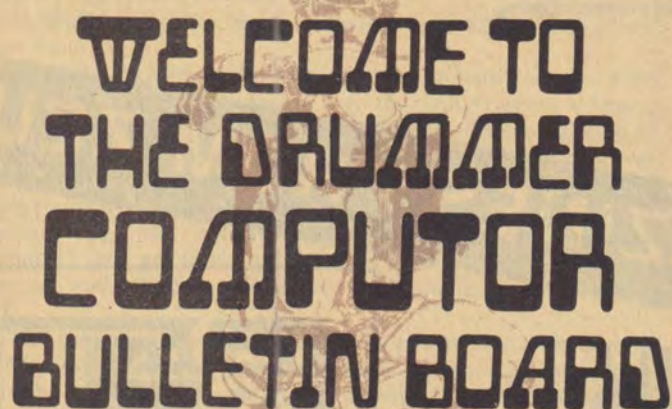 WELCOME TO
THE DRUMMER
COMPUTOR
BULLETIN BOARD